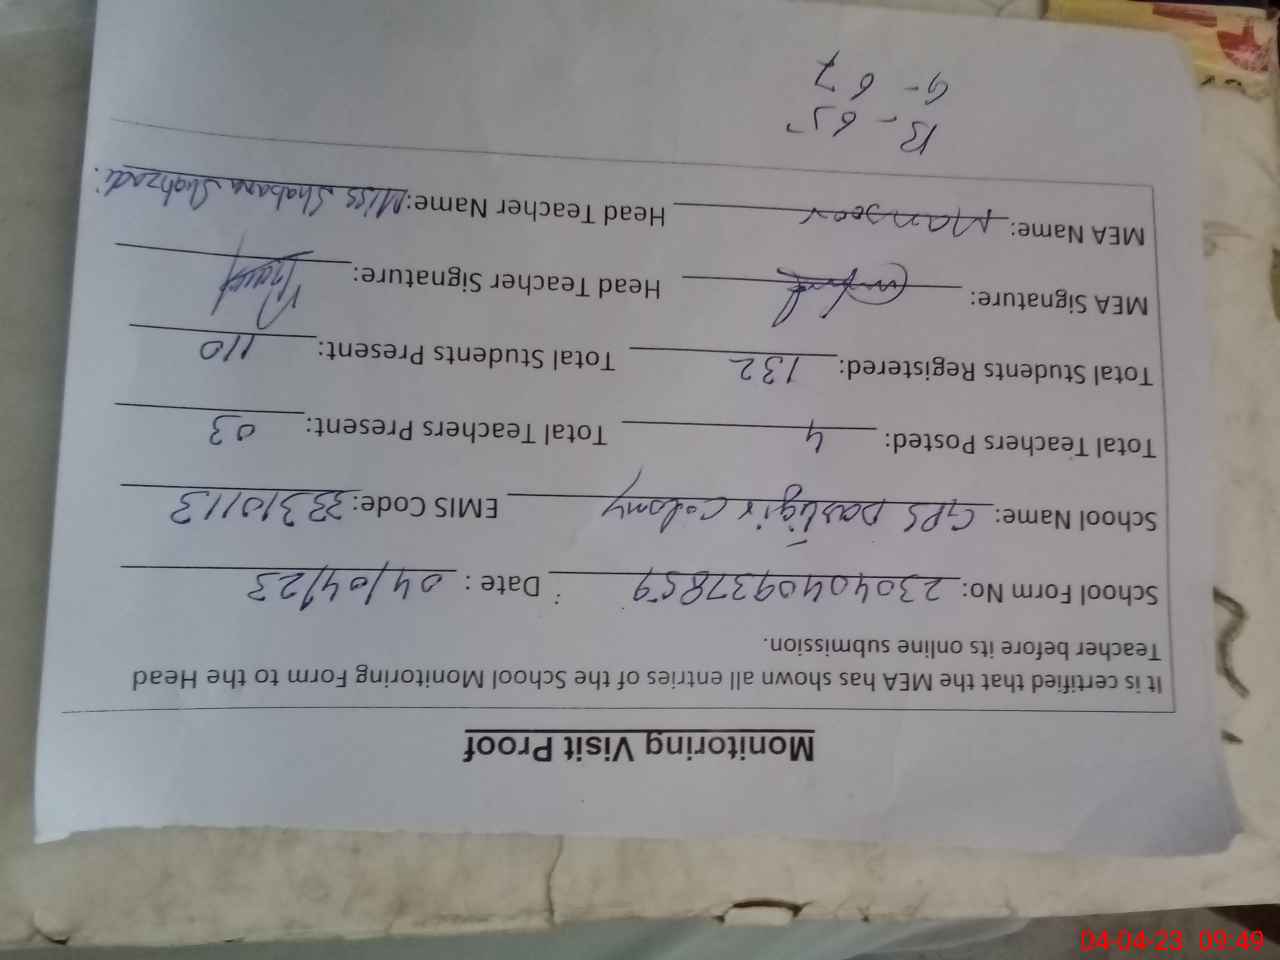 Monitoring Visit Proof
It is certified that the MEA has shown all entries of the School Monitoring Form to the Head
Teacher before its online submission.
School Form No: 230404093 7859 Date : 04/04/23
School Name: GPS Dastigir Colony EMIS Code: 33310113
Total Teachers Posted: 4 Total Teachers Present: 03
Total Students Registered: 132 Total Students Present: 110
MEA Signature: Head Teacher Signature:
MEA Name: Mansoor Head Teacher Name: Miss Shabana Shahzadi.
B - 65
G - 67
04-04-23 09:49